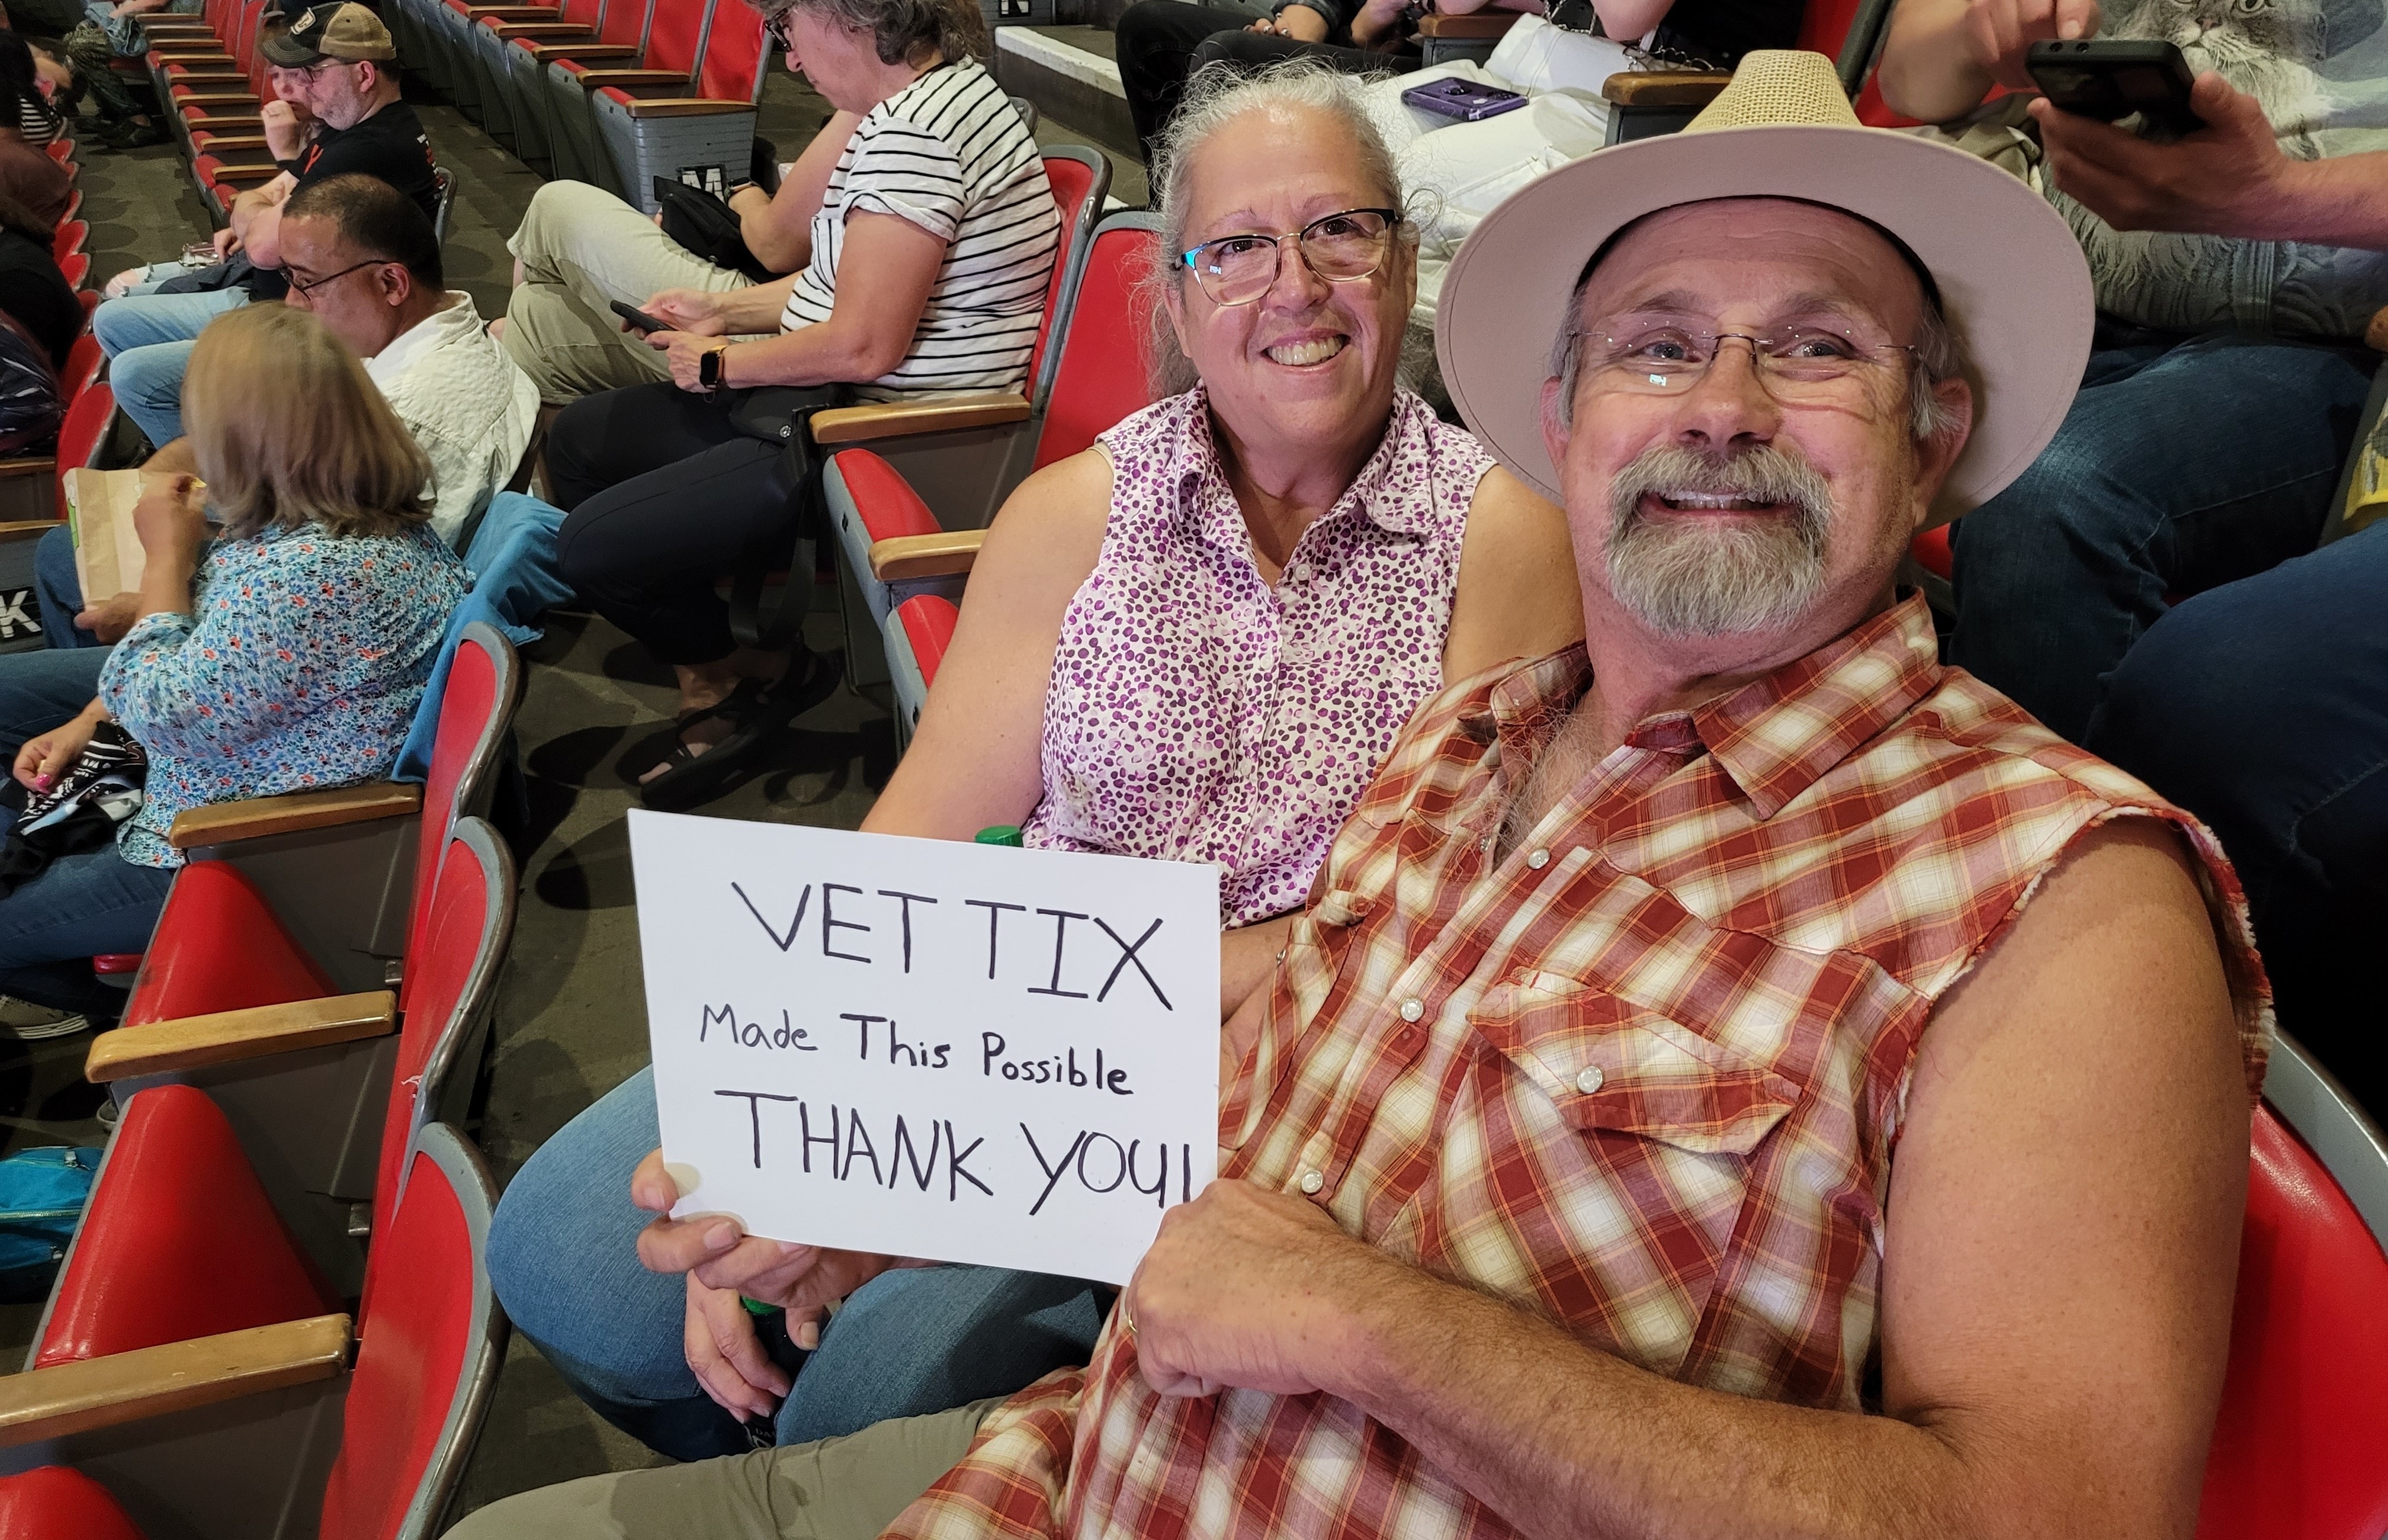 VET TIX
Made This Possible
THANK YOU!